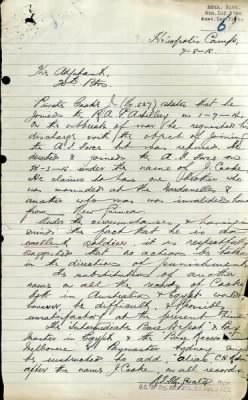 Heliopolis Camp,
The Adjutant,
Private Cooke J states that he
joined the R.A.A. Artillery on 1-7-14.
On the outbreak of war he requested his
discharge with the object of joining
the A.I. Force but was refused. He
deserted & joined the A.I. Force on
under the name of J Cooke.
He claims he has a brother who
was wounded at the Dardanelles &
another who was invalided home
from New Guinea
Under the circumstances, & having
mind the fact that he is an
excellent soldier, it is respectfully
suggested that no action be taken
in the direction of
The substitution of another
name on all the records of Cooke
both in Australia & Egypt would
however be difficult & possibly
unsatisfactory at the present time.
The Intermediate Base Depot & Pay
Master in Egypt & the Base Records
Melbourne & Paymaster Melbourne might
be instructed to add "alias
after the name J Cooke on all records